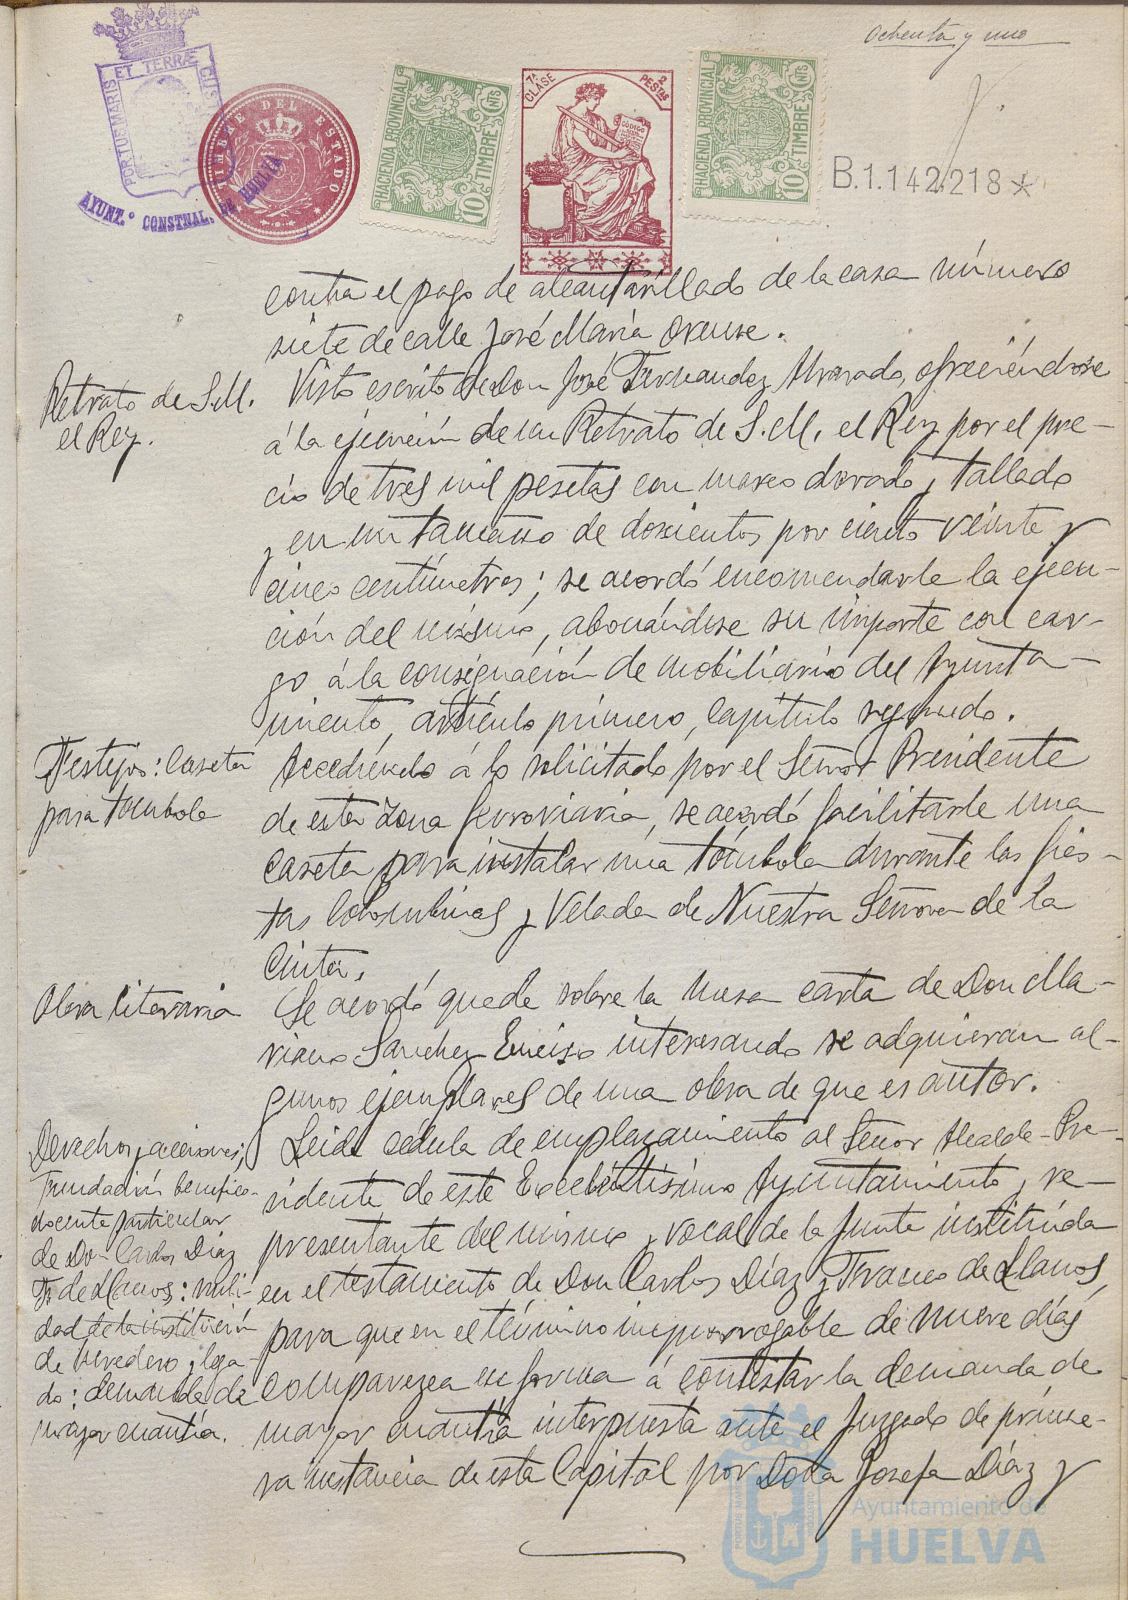 Ochenta y uno
PORTUS MARIS ET TERRÆ CUSTODIA
AYUNT.º CONSTNAL. DE HUELVA
TIMBRE DEL ESTADO
HACIENDA PROVINCIAL
10 CNTS
TIMBRE
7ª CLASE
2 PESTAS
CÓDIGO
HACIENDA PROVINCIAL
10 CNTS
TIMBRE
B.1.142,218*
contra el pago de alcantarillado de la casa número
siete de calle José María Orense.
Retrato de S.M.
el Rey.
Visto escrito de Don José Fernandez Alvarado, ofreciéndose
á la ejecución de un Retrato de S.M. el Rey por el pre-
cio de tres mil pesetas con marco dorado y tallado
y en un tamaño de doscientos por ciento veinte y
cinco centímetros; se acordó encomendarle la ejecu-
ción del mismo, abonándose su importe con car-
go á la consignación de mobiliario del Ayunta-
miento, artículo primero, capítulo segundo.
Festejos: Caseta
para tómbola
Accediendo á lo solicitado por el Señor Presidente
de esta Zona ferroviaria, se acordó facilitarle una
caseta para instalar una tómbola durante las fies-
tas Colombinas y Velada de Nuestra Señora de la
Cinta.
Obra literaria
Se acordó quede sobre la mesa carta de Don Ma-
riano Sanchez Enciso interesando se adquieran al-
gunos ejemplares de una obra de que es autor.
Derechos y acciones;
Fundación benéfico-
docente particular
de Don Carlos Díaz
F. de Llanos: nuli-
dad de la institución
de heredero y lega-
do: demanda de
mayor cuantía.
Leida cédula de emplazamiento al Señor Alcalde-Pre-
sidente de este Excelentísimo Ayuntamiento y re-
presentante del mismo y vocal de la Junta instituida
en el testamento de Don Carlos Díaz y Franco de Llanos,
para que en el término improrrogable de nueve días
comparezca en forma á contestar la demanda de
mayor cuantía interpuesta ante el Juzgado de prime-
ra instancia de esta Capital por Doña Josefa Díaz y
Ayuntamiento de
HUELVA